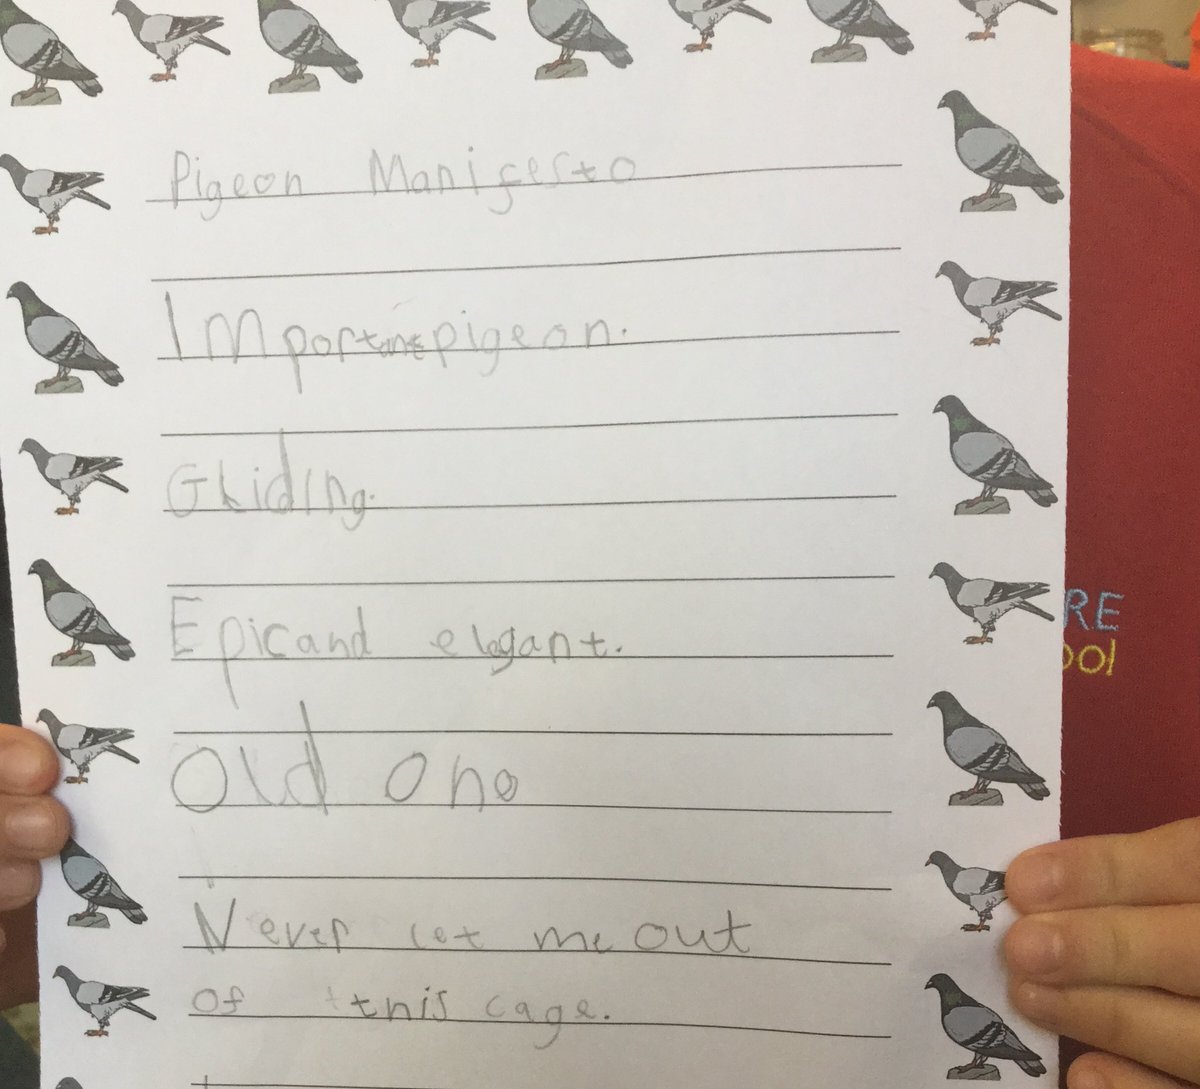 Pigeon Manifesto
IMportant pigeon.
Gliding.
Epic and elegant.
Old one
Never let me out
of this cage.
RE
ool